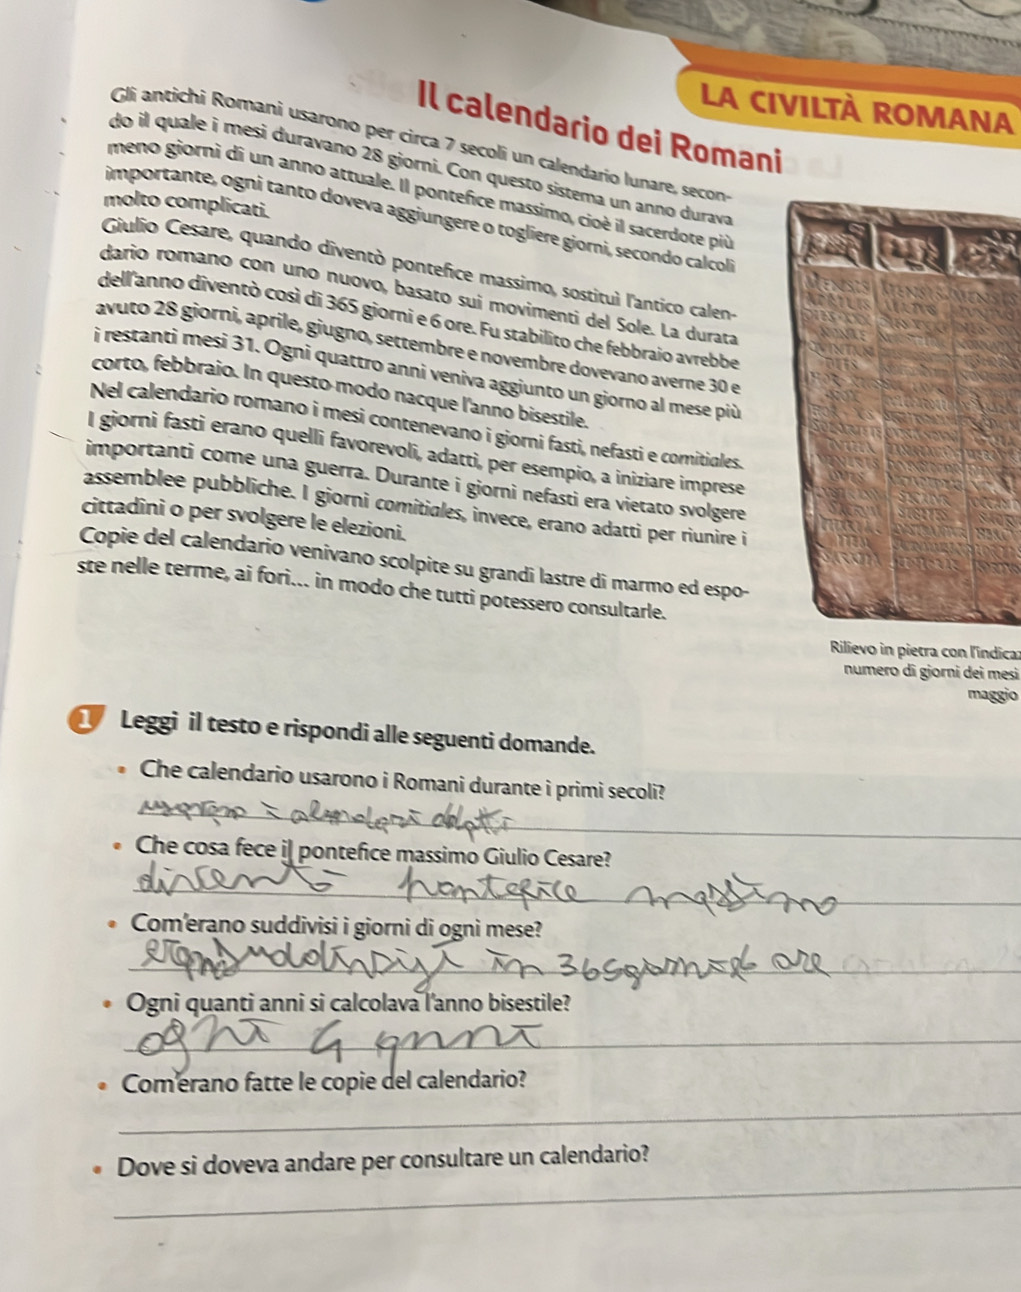 LA CIVILTÀ ROMANA
Il calendario dei Romani
Gli antichi Romani usarono per circa 7 secoli un calendario lunare, secon-
do il quale i mesi duravano 28 giorni. Con questo sistema un anno durava
meno giorni di un anno attuale. Il pontefice massimo, cioè il sacerdote più
importante, ogni tanto doveva aggiungere o togliere giorni, secondo calcoli
molto complicati.
Giulio Cesare, quando diventò pontefice massimo, sostituì l'antico calen-
dario romano con uno nuovo, basato sui movimenti del Sole. La durata
dell'anno diventò così di 365 giorni e 6 ore. Fu stabilito che febbraio avrebbe
avuto 28 giorni, aprile, giugno, settembre e novembre dovevano averne 30 e
i restanti mesi 31. Ogni quattro anni veniva aggiunto un giorno al mese più
corto, febbraio. In questo modo nacque l'anno bisestile.
Nel calendario romano i mesi contenevano i giorni fasti, nefasti e comitiales.
I giorni fasti erano quelli favorevoli, adatti, per esempio, a iniziare imprese
importanti come una guerra. Durante i giorni nefasti era vietato svolgere
assemblee pubbliche. I giorni comitiales, invece, erano adatti per riunire i
cittadini o per svolgere le elezioni.
Copie del calendario venivano scolpite su grandi lastre di marmo ed espo-
ste nelle terme, ai fori... in modo che tutti potessero consultarle.
Rilievo in pietra con l'indica
numero di giorni dei mesi
maggio
1 Leggi il testo e rispondi alle seguenti domande.
• Che calendario usarono i Romani durante i primi secoli?
• Che cosa fece il pontefice massimo Giulio Cesare?
massimo
• Com'erano suddivisi i giorni di ogni mese?
in 365 giorni e 6 ore
• Ogni quanti anni si calcolava l'anno bisestile?
ogni 4 anni
• Com'erano fatte le copie del calendario?
• Dove si doveva andare per consultare un calendario?